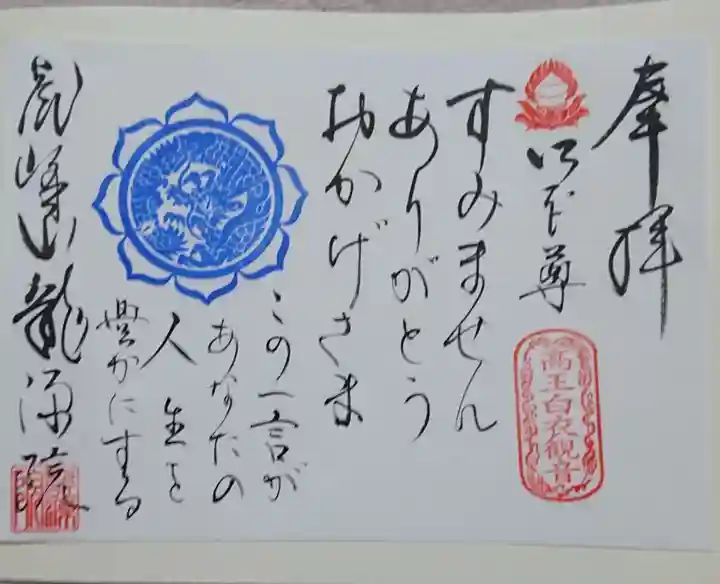 奉拝
尊
高王白衣観音
すみません
ありがとう
おかげさま
この一言が
あなたの
人生を
豊かにする
山龍源院